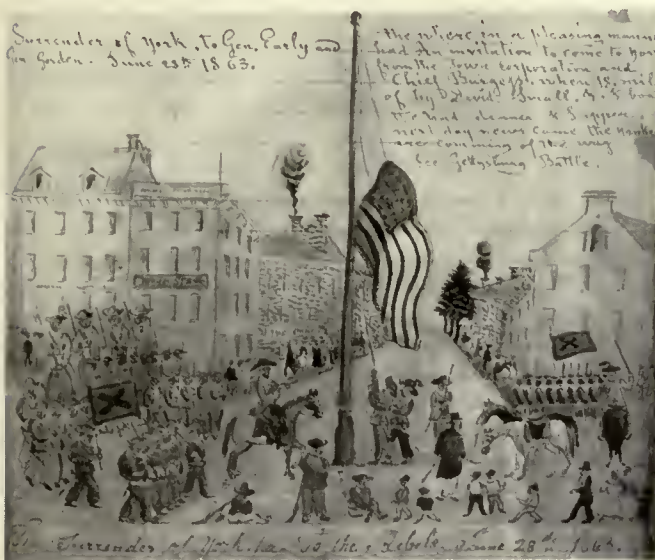 Surrender of York, to Gen. Early and
Gen Gordon. June 28th 1863.
the where in a pleasing manner
had an invitation to come to York
from the Town corporation and
Chief Burgess. when 18. mil
of by David Small. &
We had dinner & Supper.
next day news came the Yankes
are comming of the way
See Gettysburg Battle.
The Surrender of York. Pa. to the Rebels, June 28th 1863.